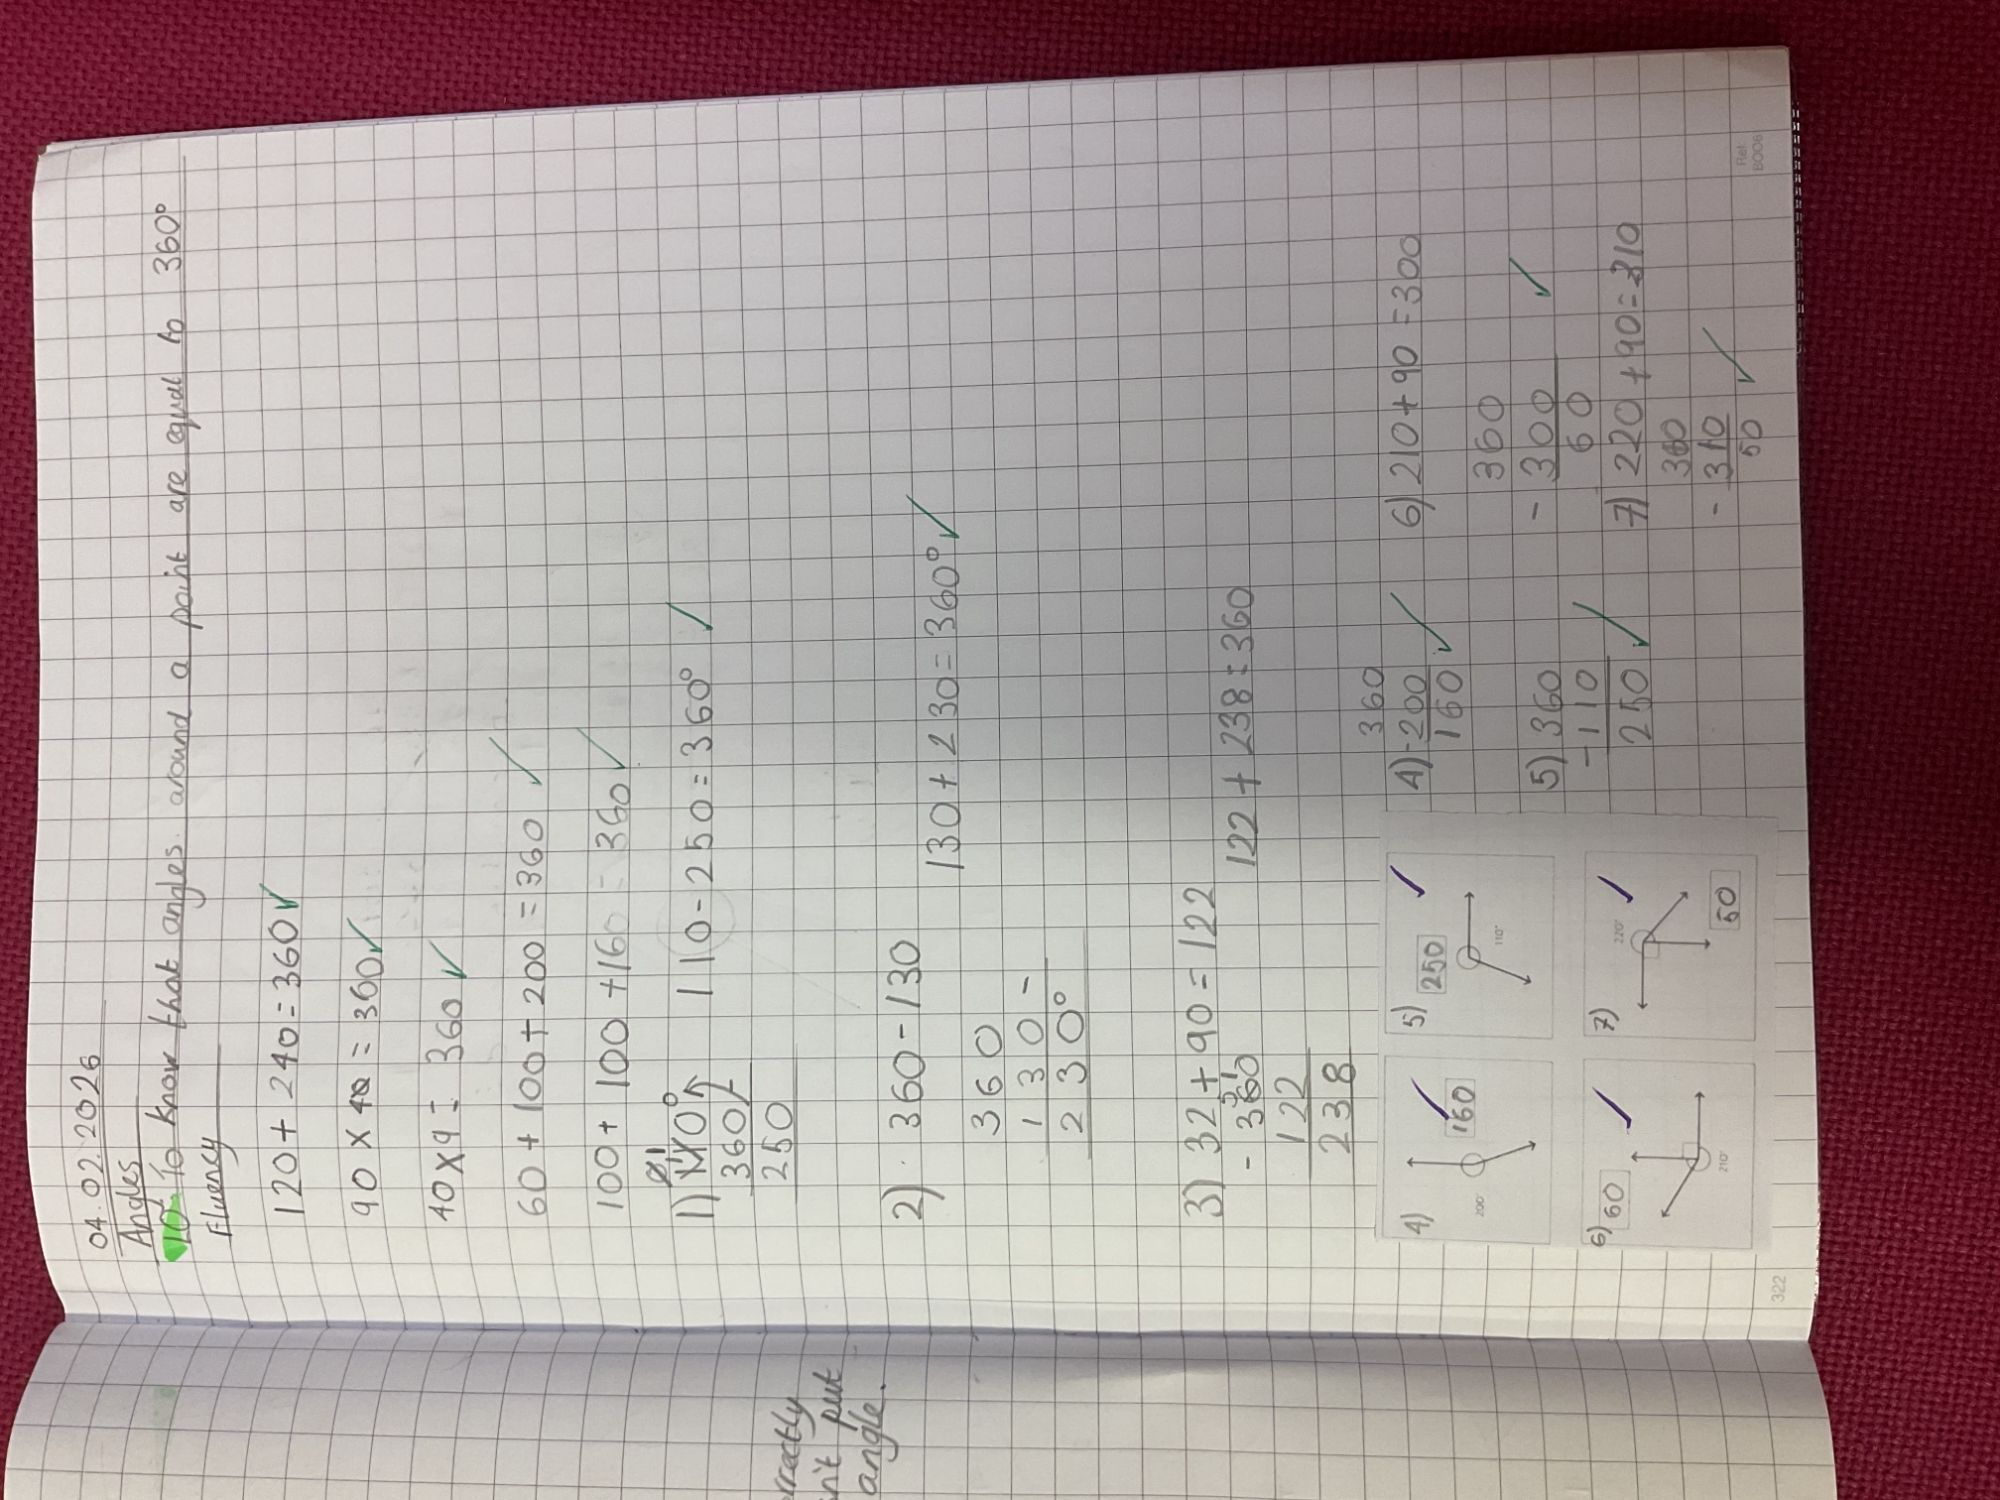 04.02.2026
Angles
LO: To know that angles around a point are equal to 360°
Fluency
120 + 240 = 360
90 × 40 = 360
40 × 9 = 360
60 + 100 + 200 = 360
100 + 100 + 160 = 360
1) 110° 110 - 250 = 360°
360
250
2) 360 - 130
130 + 230 = 360°
360
130 -
230°
3) 32 + 90 = 122
- 360
122
238
122 + 238 = 360
4) 200° 160
5) 250 110°
6) 60 210°
7) 220° 50
360
4) - 200
160
5) 360
- 110
250
6) 210 + 90 = 300
360
- 300
60
7) 220 + 90 = 310
360
- 310
50
322
Ref:
BO06
n't put
angle.